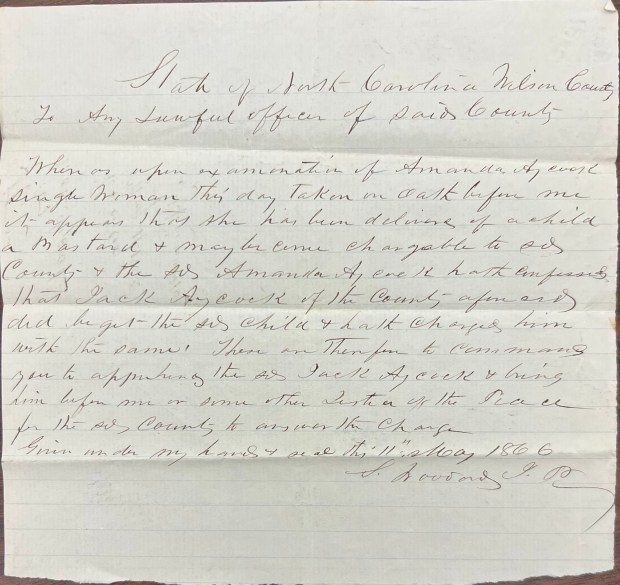 State of North Carolina Wilson County
To Any Lawful officer of said County
Whereas upon examination of Amanda Aycock
single Woman this day taken on oath before me
it appears that she has been delivered of a child
a Bastard & may become chargable to sd
County & the sd Amanda Aycock hath confessed
that Jack Aycock of the County aforesaid
did beget the sd child & hath charged him
with the same! These are Therefore to command
you to apprehend the sd Jack Aycock & bring
him before me or some other Justice of the Peace
for the sd County to answer the charge
Given under my hand & seal this 11" May 1866
S. Woodard J. P.